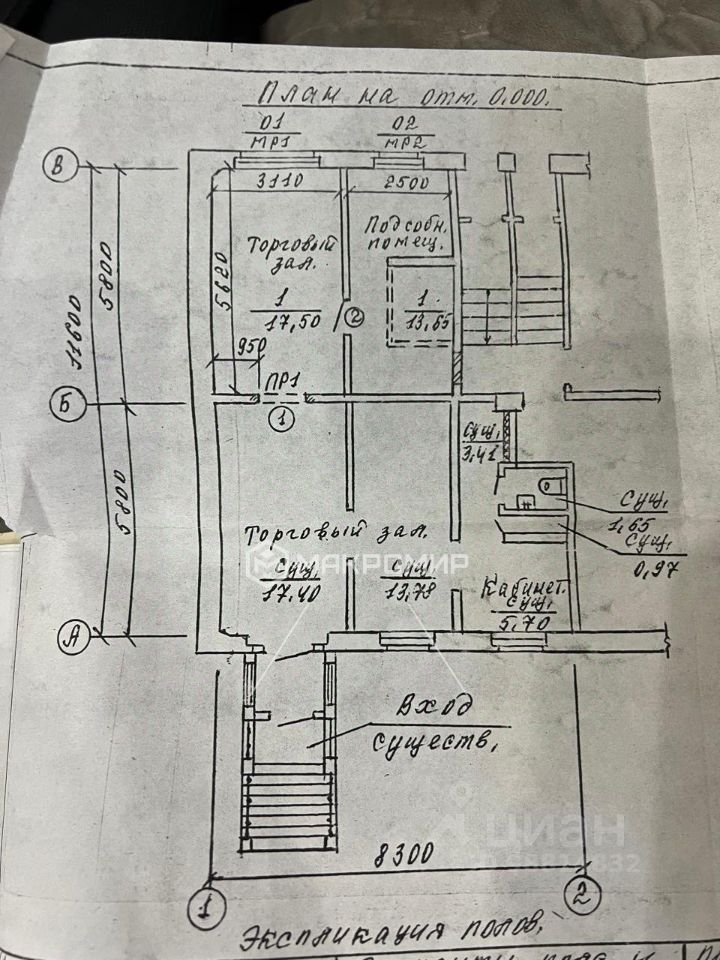 План на отм. 0,000.
01
МР1
02
МР2
В
3110
2500
Торговый
зал.
Подсобн.
помещ.
5800
11600
5620
1
17,50
2
1
13,65
950
ПР1
Б
1
Сущ,
3,41
5800
Сущ,
1,65
Сущ,
0,97
Торговый зал.
МАКРОМИР
Сущ,
17,40
Сущ,
13,78
Кабинет.
Сущ,
5,70
А
Вход
существ,
циан
8300
1
2
Экспликация полов,